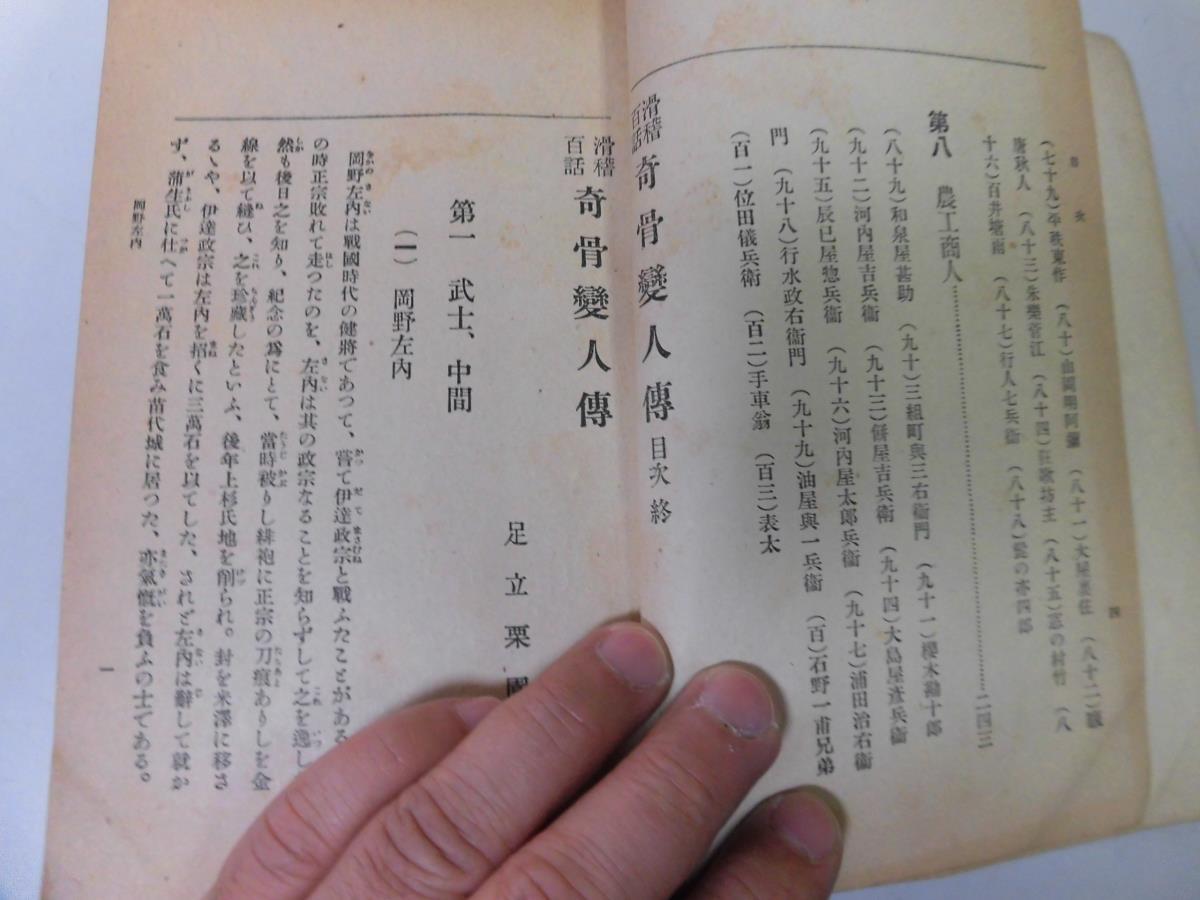 四
(七十九)平秩東作 (八十)山岡明阿彌 (八十一)大屋裏住 (八十二)
唐秋人 (八十三)朱樂菅江 (八十四)狂歌坊主 (八十五)窓の村竹 (八
十六)百井塘雨 (八十七)行人七兵衞 (八十八)藍の亦四郎
第八 農工商人…………二四三
(八十九)和泉屋甚助 (九十)三組町與三右衞門 (九十一)櫻木勘十郎
(九十二)河內屋吉兵衞 (九十三)餅屋吉兵衞 (九十四)大島屋彥兵衞
(九十五)辰巳屋惣兵衞 (九十六)河內屋太郎兵衞 (九十七)浦田治右衞
門 (九十八)行水政右衞門 (九十九)油屋與一兵衞 (百)石野一甫兄弟
(百一)位田儀兵衞 (百二)手車翁 (百三)表太
滑稽百話 奇骨變人傳 目次 終
滑稽百話 奇骨變人傳
足立栗園
第一 武士、中間
(一) 岡野左內
岡野左內は戰國時代の健將であつて、嘗て伊達政宗と戰ふたことがある
の時正宗敗れて走つたのを、左內は其の政宗なることを知らずして之を逸し
然も後日之を知り、紀念の爲にとて、當時被りし緋袍に正宗の刀痕ありしを金
線を以て縫ひ、之を珍藏したといふ、後年上杉氏地を削られ。封を米澤に移さ
るゝや、伊達政宗は左內を招くに三萬石を以てした、されど左內は辭して就か
ず、蒲生氏に仕へて一萬石を食み苗代城に居つた、亦氣慨を負ふの士である。
岡野左內
一